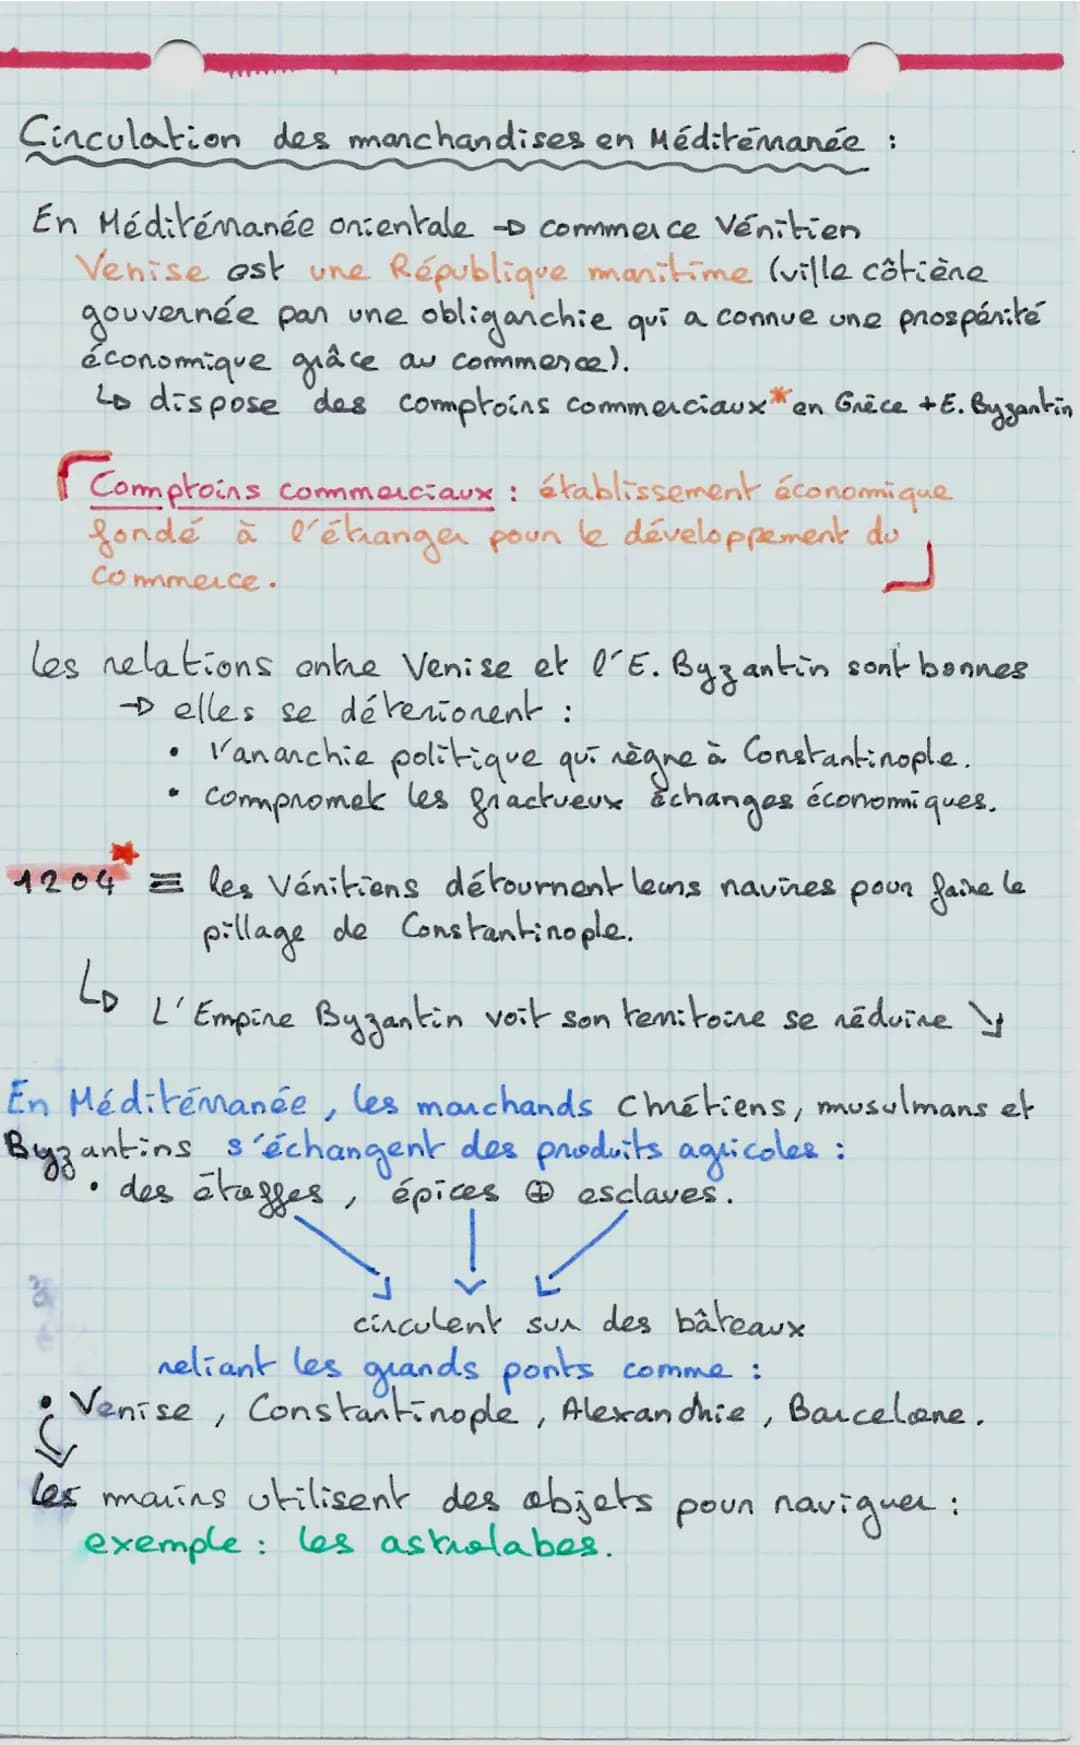 Circulation des marchandises en Méditérranée :
En Méditérranée orientale → commerce Vénitien
Venise est une République maritime (ville côtière
gouvernée par une obligarchie qui a connue une prospérité
économique grâce au commerce).
↳ dispose des comptoirs commerciaux* en Grèce + E. Byzantin
Comptoirs commerciaux : établissement économique
fondé à l'étranger pour le développement du
commerce.
les relations entre Venise et l'E. Byzantin sont bonnes
→ elles se déteriorent :
• l'anarchie politique qui règne à Constantinople.
• compromet les fractueux échanges économiques.
1204* = les Vénitiens détournent leurs navires pour faire le
pillage de Constantinople.
↳ L'Empire Byzantin voit son territoire se réduire ↘
En Méditérranée, les marchands Chrétiens, musulmans et
Byzantins s'échangent des produits agricoles :
• des étoffes, épices ⊕ esclaves.
circulent sur des bâteaux
reliant les grands ports comme :
• Venise, Constantinople, Alexandrie, Barcelone.
les marins utilisent des objets pour naviguer :
exemple : les astrolabes.